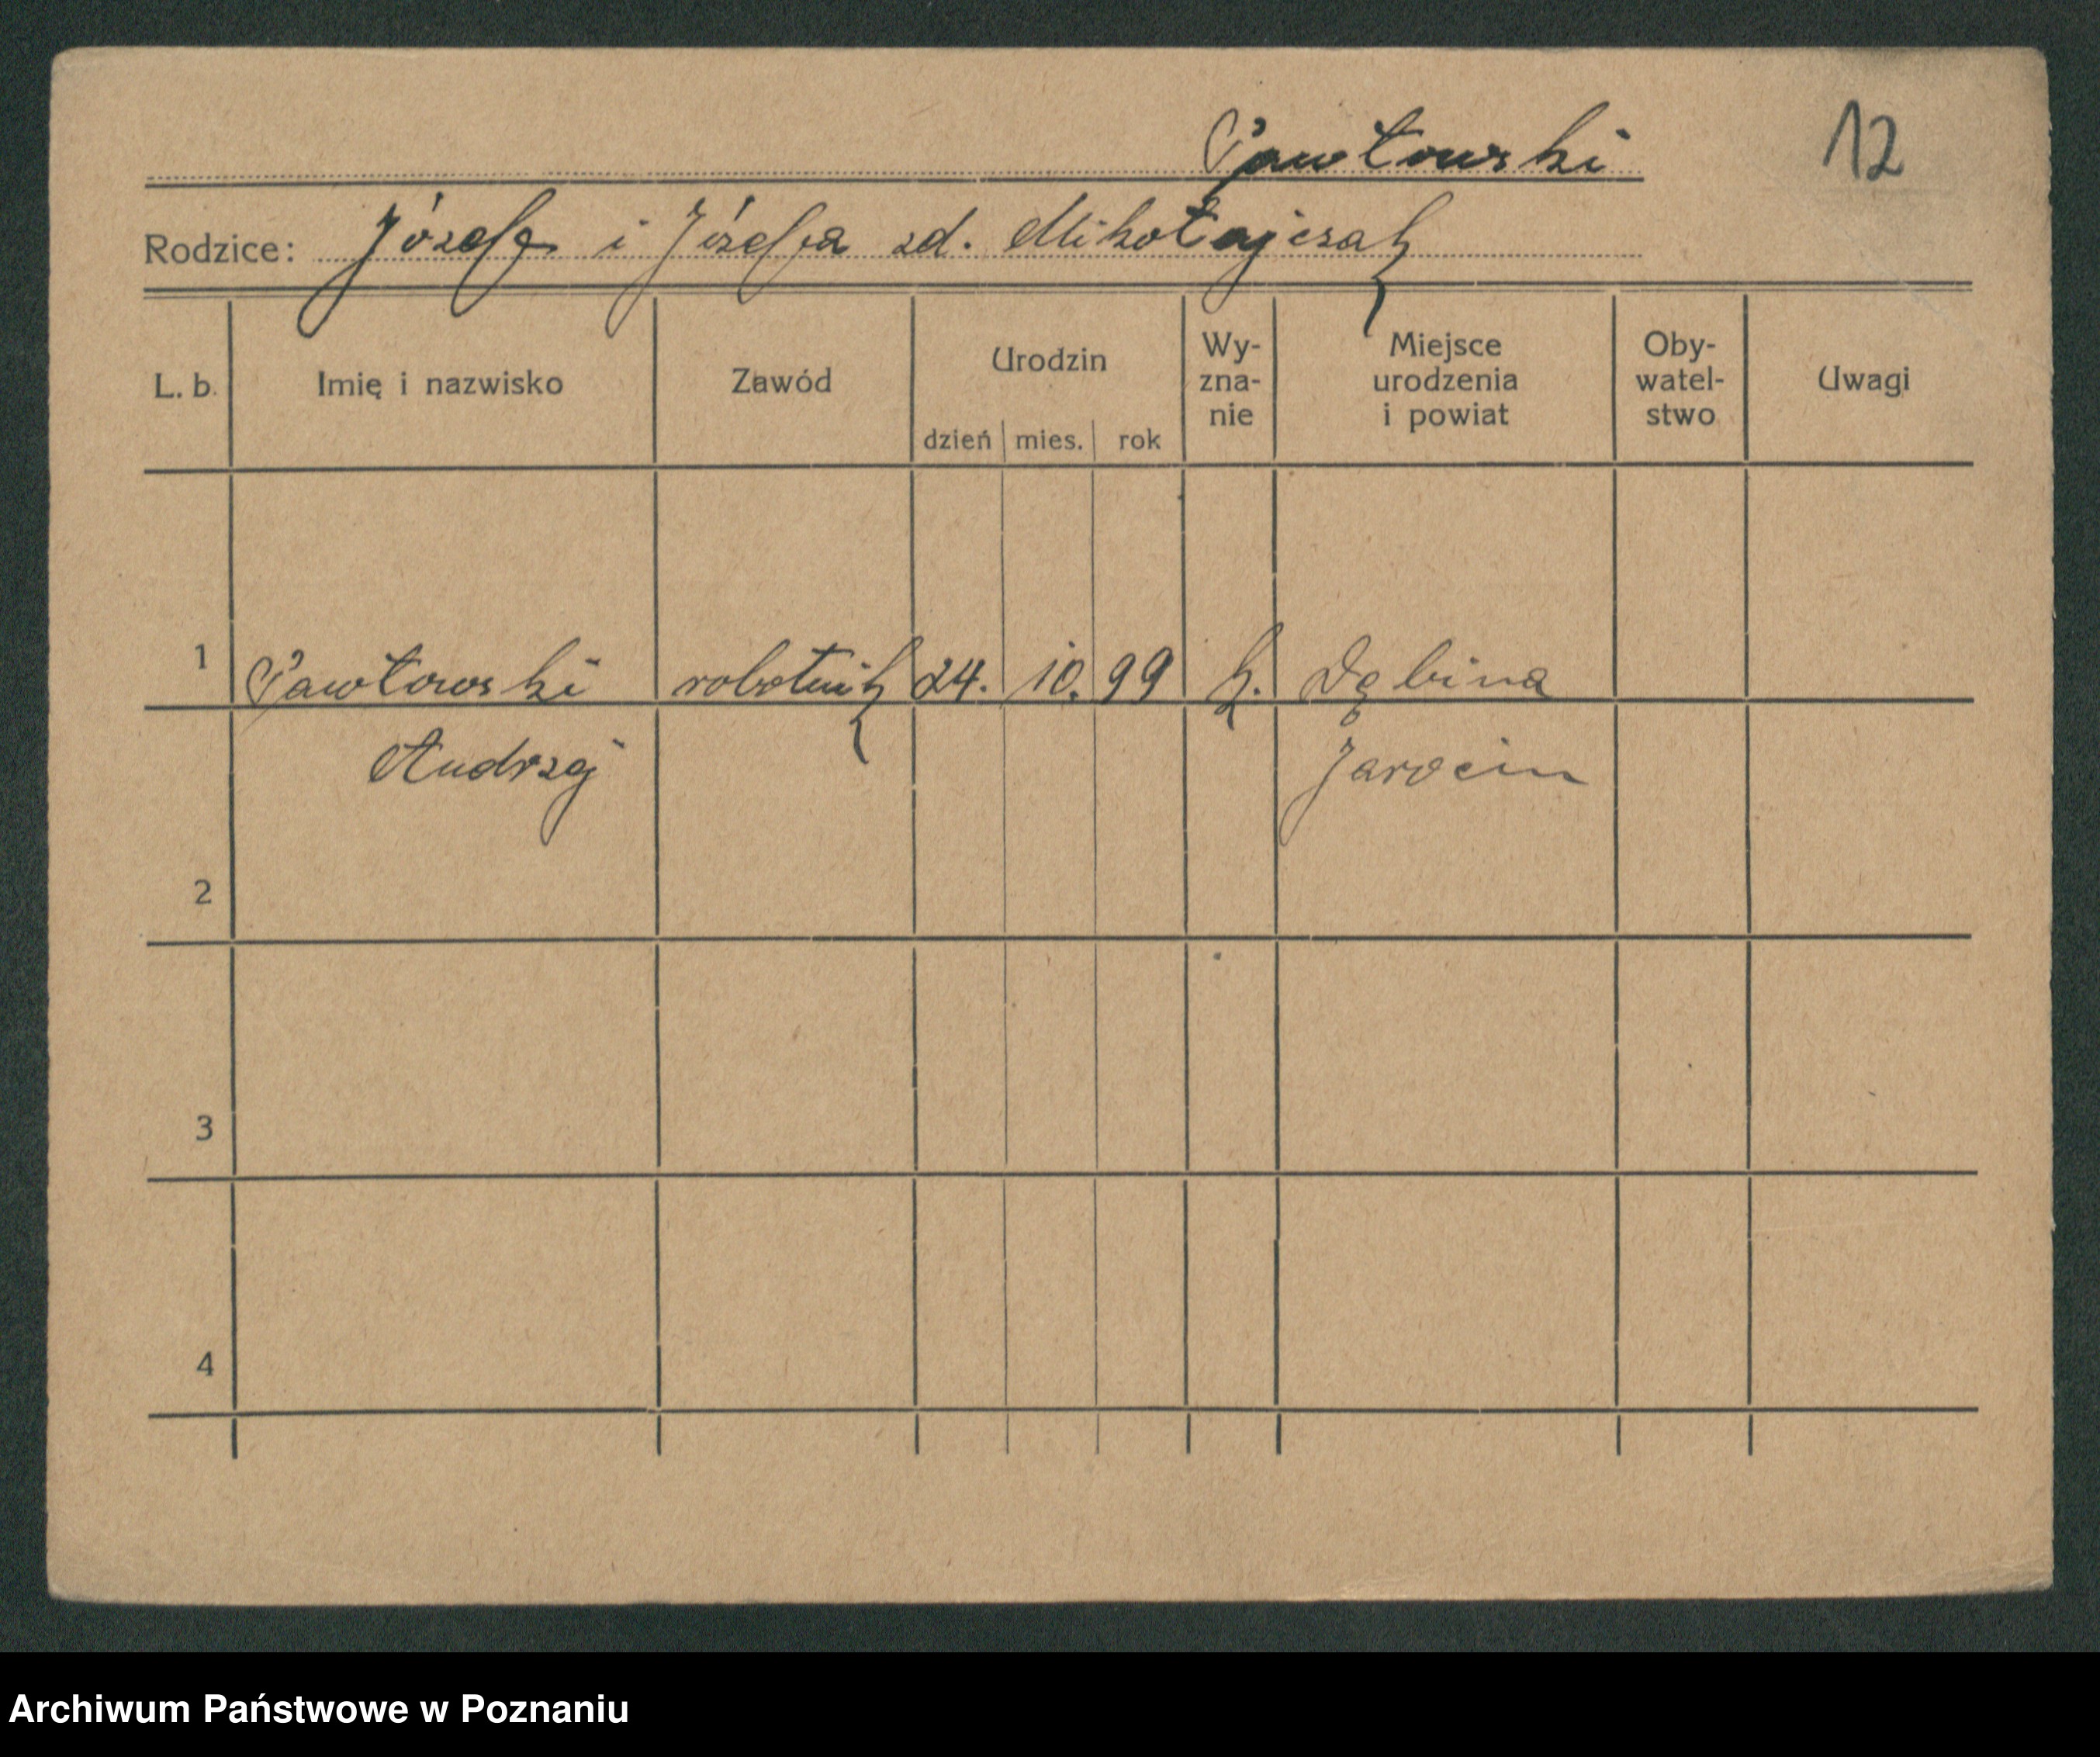 Pawłowski
12
Rodzice: Józef i Józefa zd. Mikołajczak
L. b. Imię i nazwisko Zawód Urodzin dzień mies. rok Wy-zna-nie Miejsce urodzenia i powiat Oby-watel-stwo Uwagi
1 Pawłowski robotnik 24. 10. 99 k. Dębina
Andrzej Jarocin
2
3
4
Archiwum Państwowe w Poznaniu